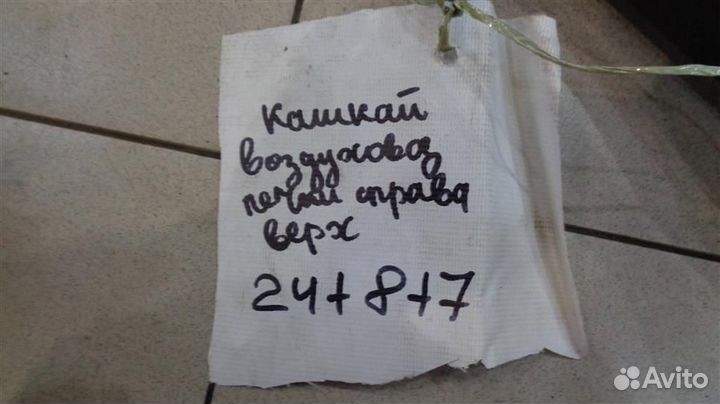 Кашкай
воздуховод
печки справа
верх
24+8+7
Avito